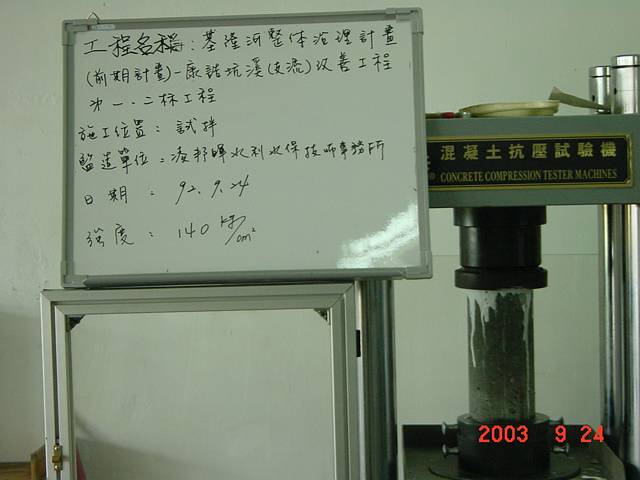 工程名稱：基隆河整体治理計畫
(前期計畫)-康誥坑溪(支流)改善工程
第一、二標工程
施工位置：試拌
監造單位：凌邦暉水利水保技師事務所
日期：92.9.24
強度：140 kg/cm²
混凝土抗壓試驗機
CONCRETE COMPRESSION TESTER MACHINES
2003 9 24